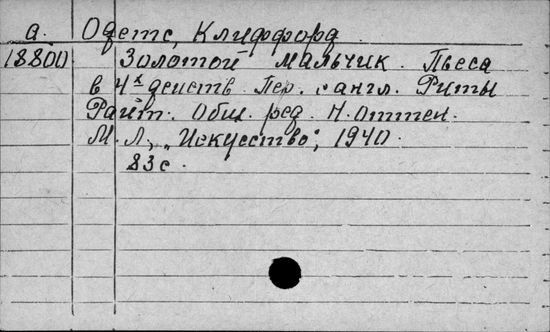 а. Одетс, Клиффорд.
18800 Золотой мальчик. Пьеса
в 4х действ. Пер. с англ. Риты
Райт. Общ. ред. Н. Оттен.
М. Л., „Искусство", 1940.
83 с.